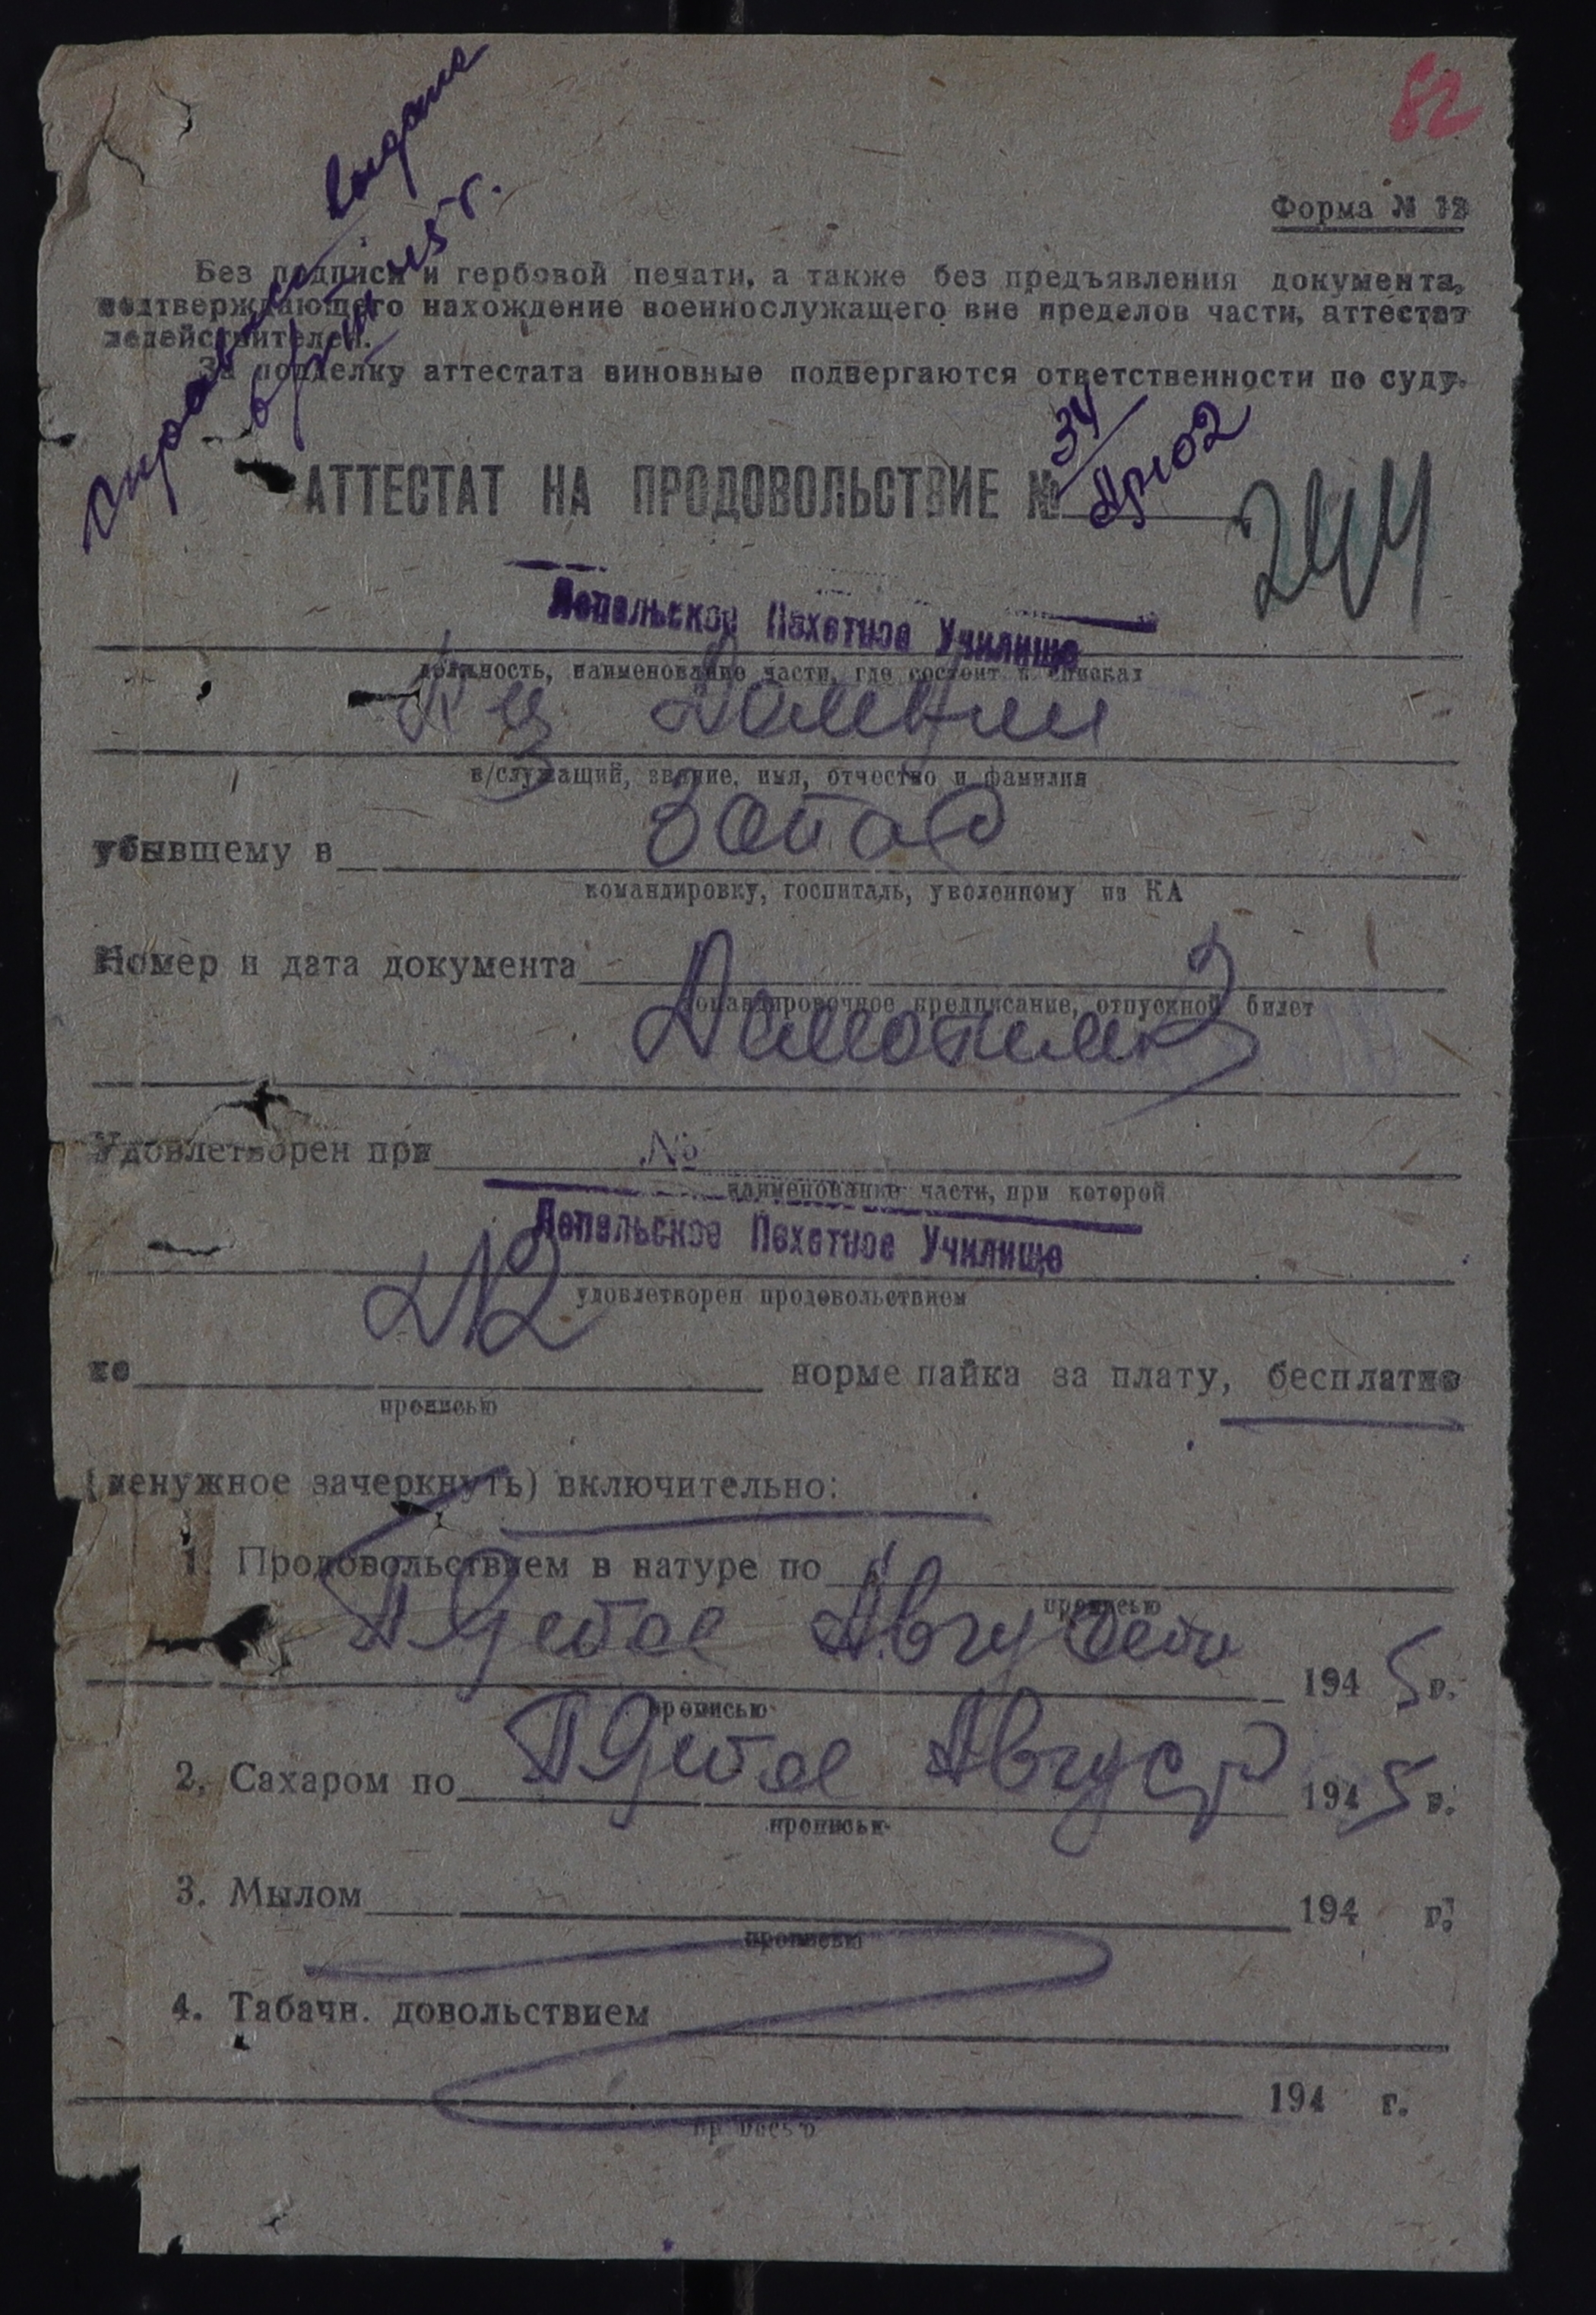 82
Форма № 12
выдана
45 г.
Без подписи и гербовой печати, а также без предъявления документа,
подтверждающего нахождение военнослужащего вне пределов части, аттестат
недействителен.
За подделку аттестата виновные подвергаются ответственности по суду.
34
АТТЕСТАТ НА ПРОДОВОЛЬСТВИЕ №
244
Лепельское Пехотное Училище
должность, наименование части, где состоит в списках
в/служащий, звание, имя, отчество и фамилия
убывшему в Запас
командировку, госпиталь, уволенному из КА
Номер и дата документа
командировочное предписание, отпускной билет
Удовлетворен при №
наименование части, при которой
Лепельское Пехотное Училище
удовлетворен продовольствием
по норме пайка за плату, бесплатно
прописью
(ненужное зачеркнуть) включительно:
1. Продовольствием в натуре по
прописью
Пятое Августа 1945 г.
прописью
2. Сахаром по Пятое Август 1945 г.
прописью
3. Мылом 194 г.
прописью
4. Табачн. довольствием
194 г.
прописью